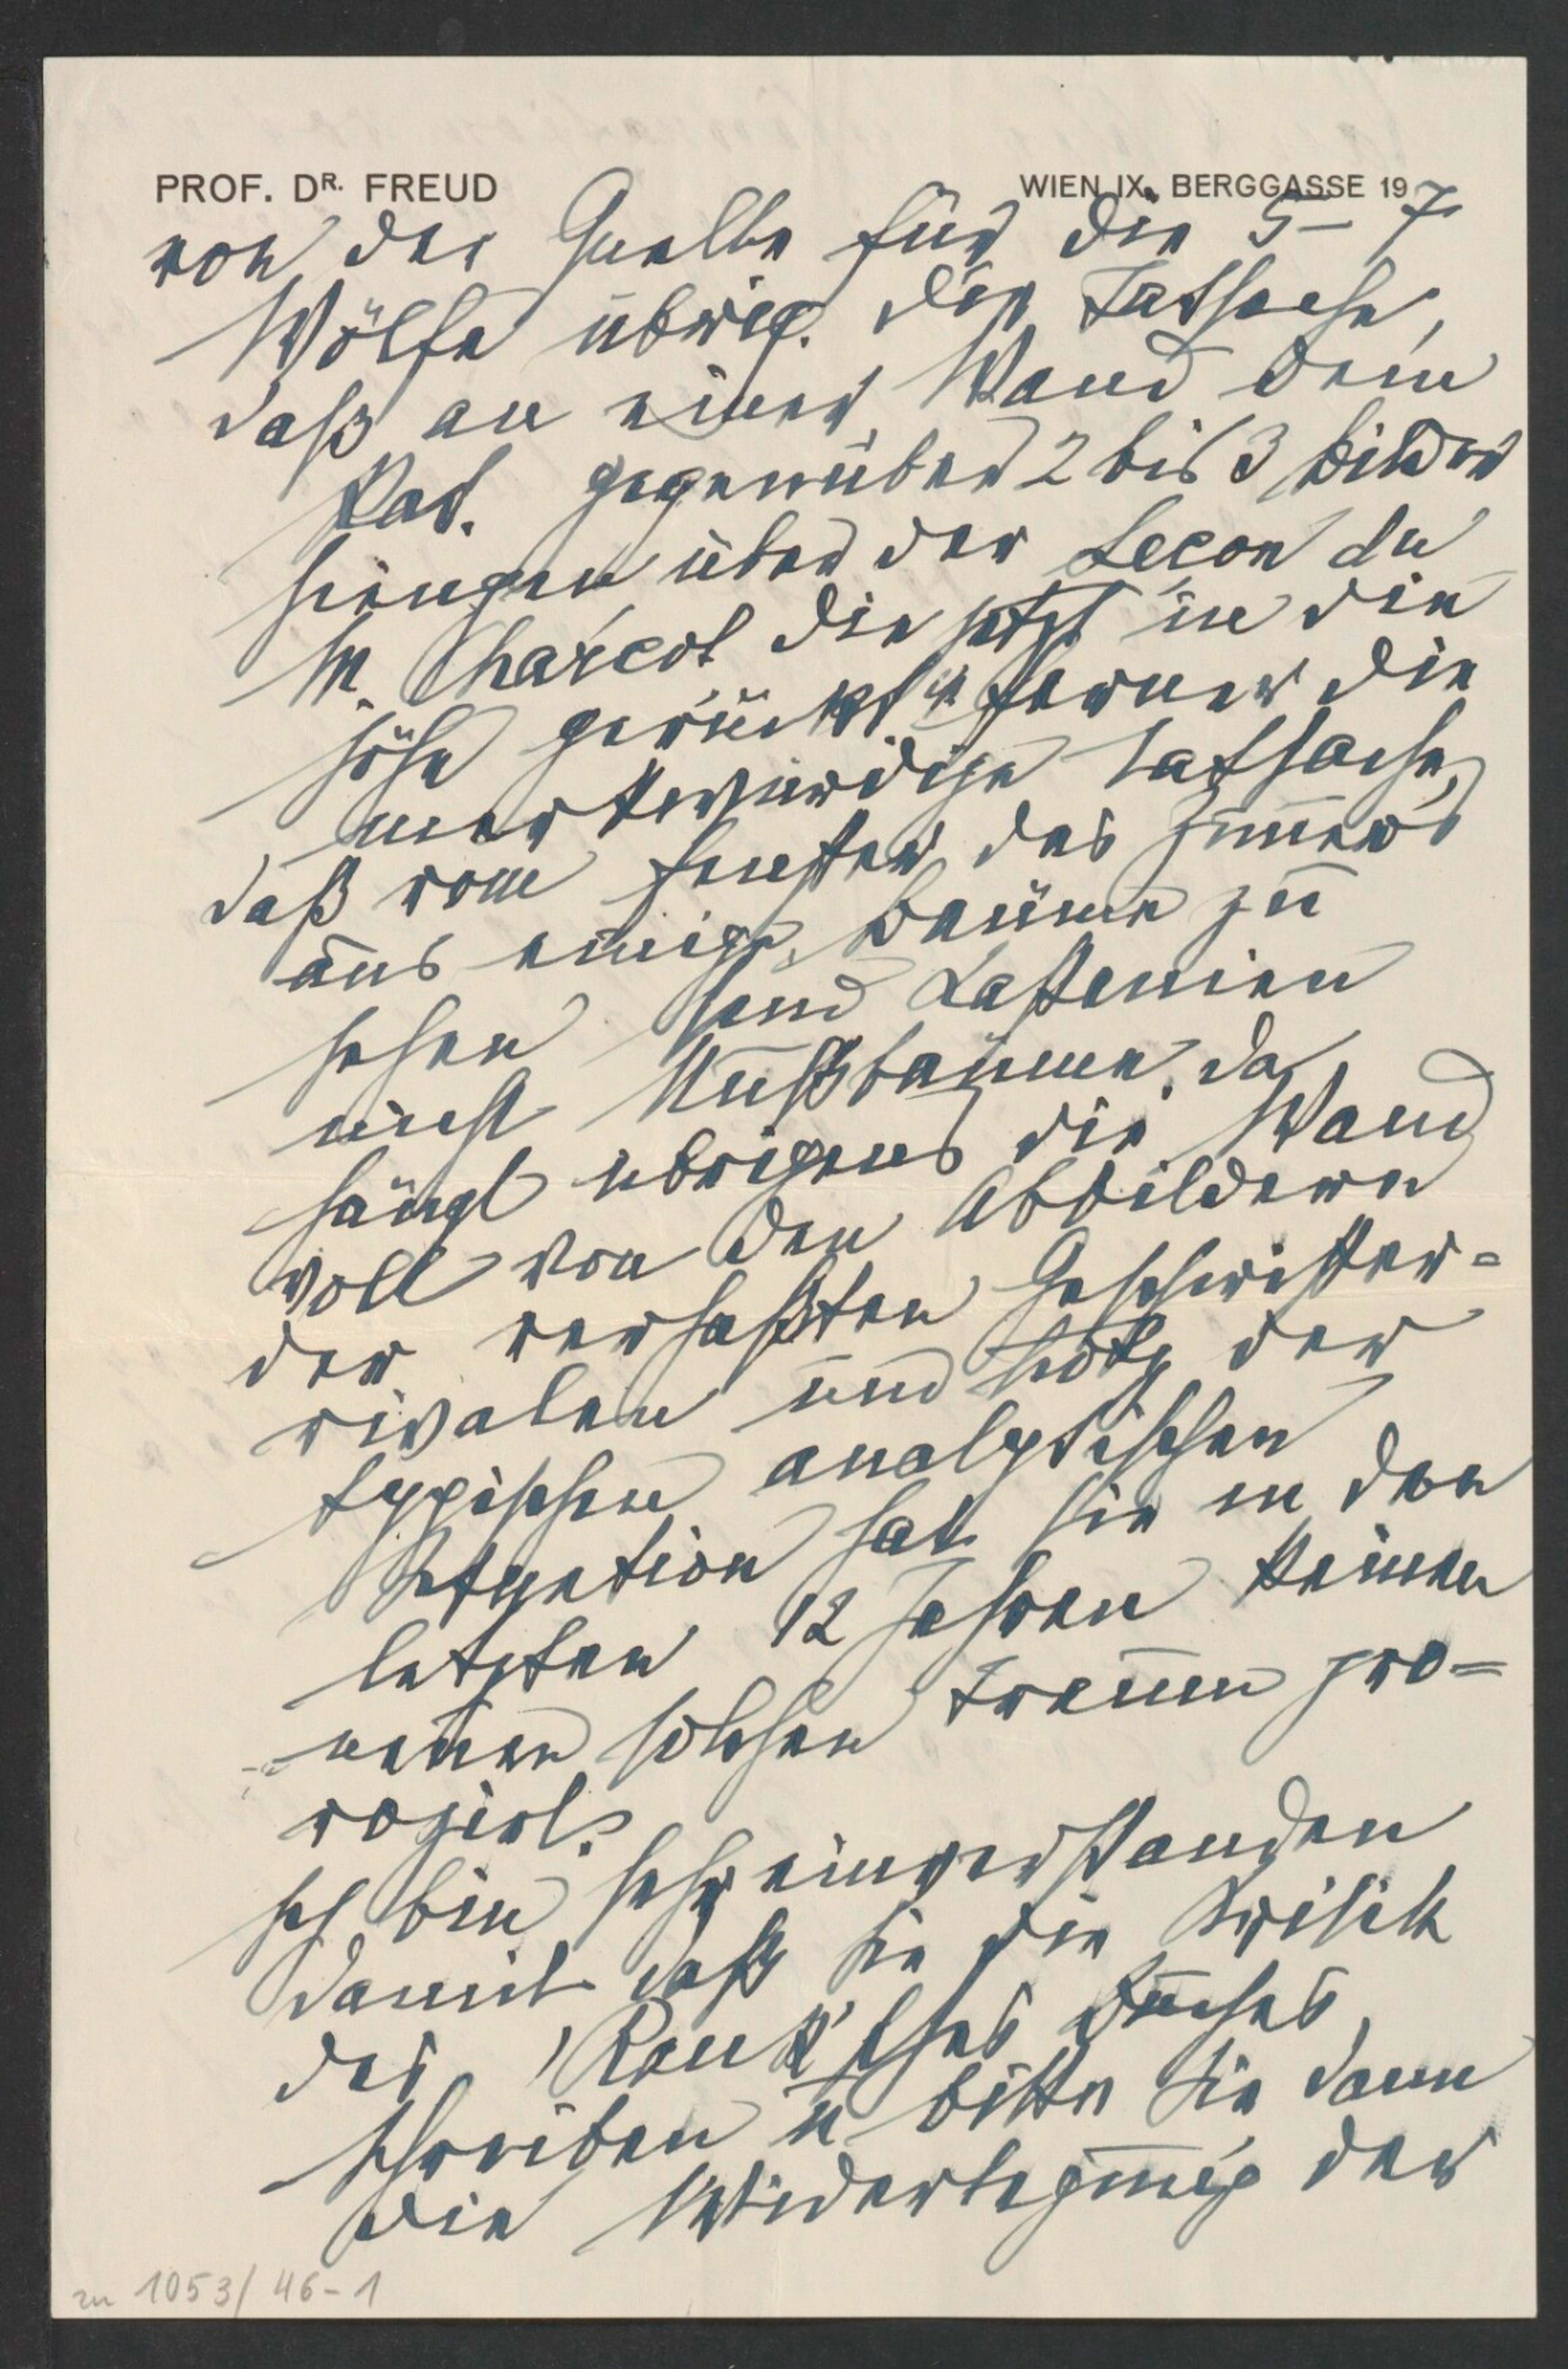 PROF. DR. FREUD
WIEN IX., BERGGASSE 19
von der Quelle für die 5–7
Wölfe übrig. Die Tatsache,
daß an einer Wand dem
Pat. gegenüber 2 bis 3 Bilder
hängen über der Lecon du
M. Charcot die jetzt in die
Höhe gerückt ist ferner die
merkwürdige Tatsache,
daß vom Fenster des Zimmers
aus einige Bäume zu
sehen sind Kastanien
nicht Nußbäume. Da
hängt übrigens die Wand
voll von den Abbildern
der verhaßten Geschwister=
rivalen und trotz der
typischen analytischen
Situation hat sie in den
letzten 12 Jahren keinen
solchen Traum pro=
voziert.
Ich bin sehr einverstanden
damit daß Sie die Kritik
des Rank'schen Buches
schreiben u bitte Sie dann
die Widerlegung der
zu 1053/46-1